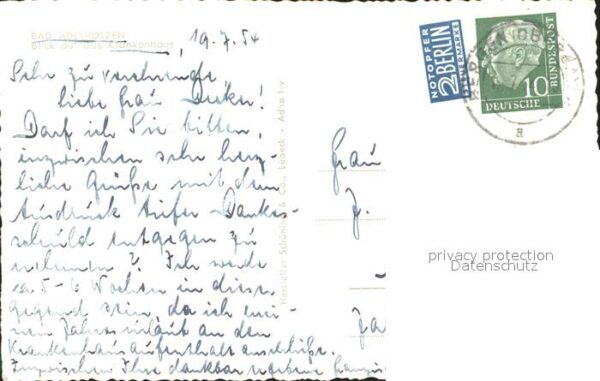 BAD ADELHOLZEN
Blick auf das Krankenhaus
19.7.54
Sehr zu verehrende,
liebe Frau
Darf ich Sie bitten,
inzwischen sehr herz-
liche Grüße mit dem
Ausdruck tiefer Dankes-
schuld entgegen zu
nehmen? Ich werde
ca 5-6 Wochen in dieser
Gegend sein, da ich mei-
nen Jahresurlaub an den
Krankenhausaufenthalt anschließe.
Inzwischen Ihre dankbar
Hersteller Schöning & Co., Lübeck - Adho 1-v
Frau
J.
NOTOPFER
2 BERLIN
STEUERMARKE
10
DEUTSCHE
BUNDESPOST
a
privacy protection
Datenschutz